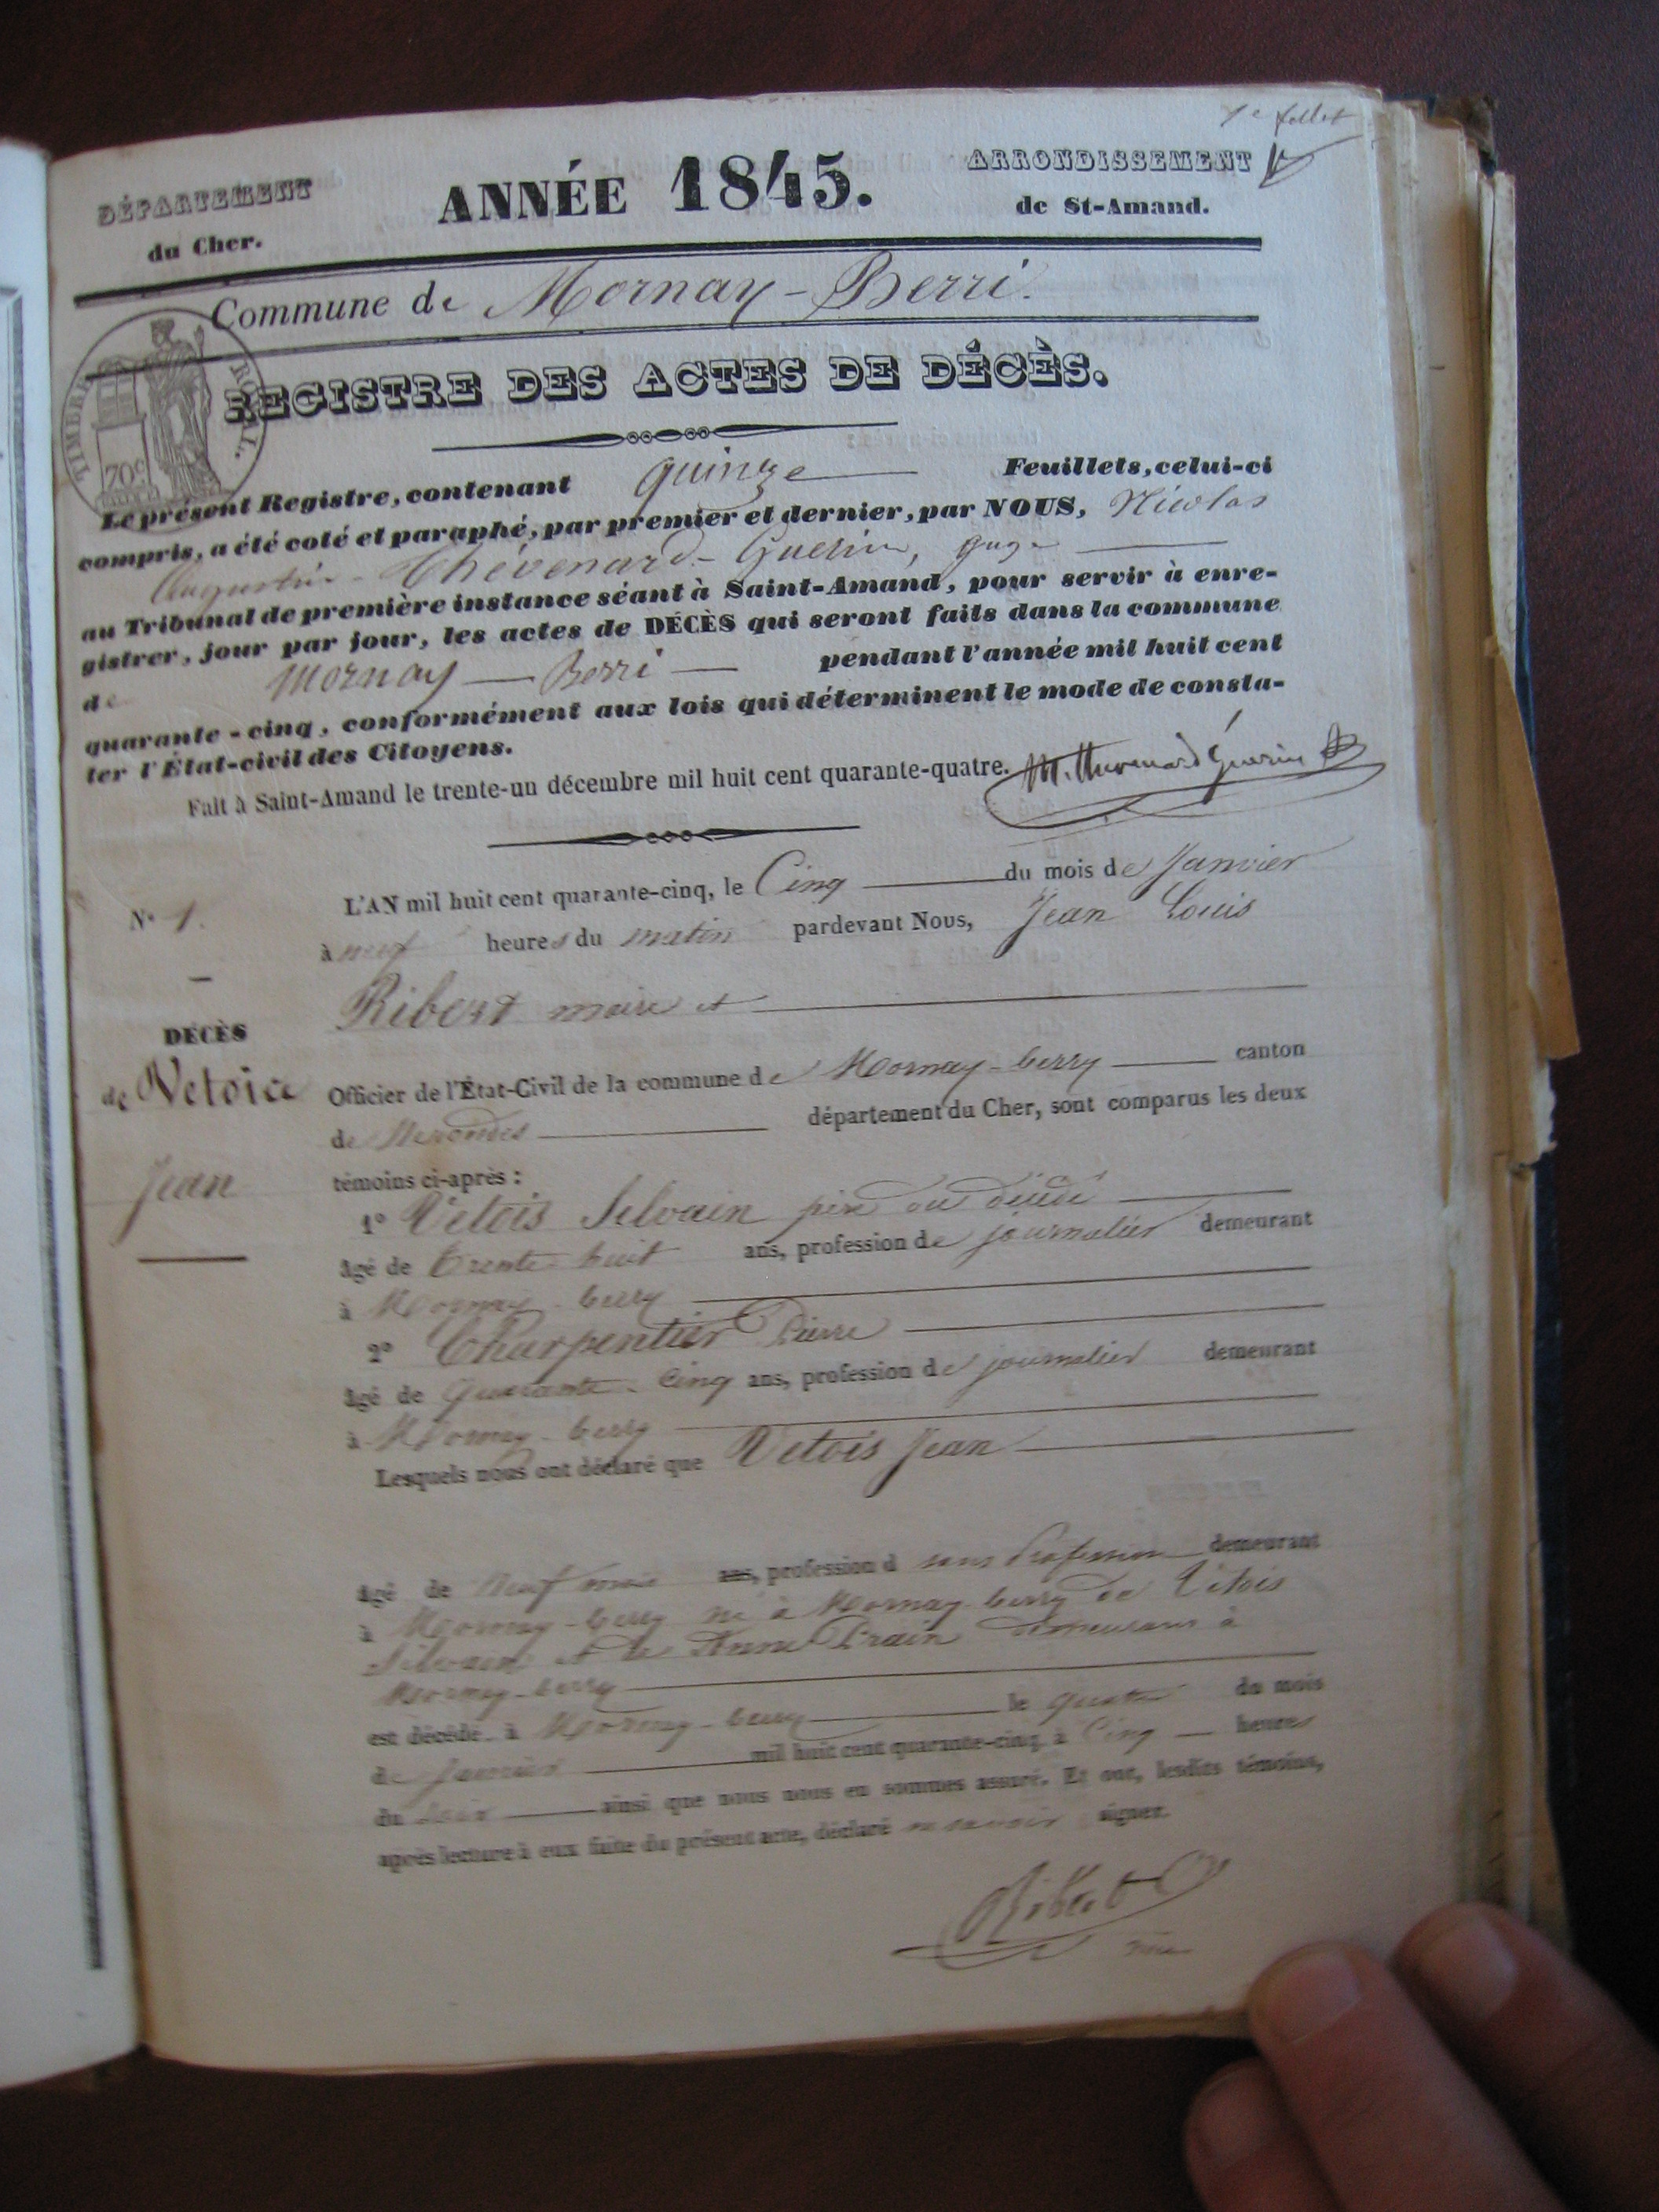 1er feuillet
DÉPARTEMENT
du Cher.
ANNÉE 1845.
ARRONDISSEMENT
de St-Amand.
Commune de Mornay-Berri.
TIMBRE ROYAL.
70c
REGISTRE DES ACTES DE DÉCÈS.
Le présent Registre, contenant quinze Feuillets, celui-ci
compris, a été coté et paraphé, par premier et dernier, par NOUS, Nicolas
Augustin Chévenard-Guérin, juge
au Tribunal de première instance séant à Saint-Amand, pour servir à enre-
gistrer, jour par jour, les actes de DÉCÈS qui seront faits dans la commune
de Mornay-Berri pendant l'année mil huit cent
quarante-cinq, conformément aux lois qui déterminent le mode de consta-
ter l'État-civil des Citoyens.
Fait à Saint-Amand le trente-un décembre mil huit cent quarante-quatre.
N° 1.
L'AN mil huit cent quarante-cinq, le Cinq du mois de Janvier
à neuf heures du matin pardevant Nous, Jean Louis
Ribert maire et
DÉCÈS
de Vetois
Jean
Officier de l'État-Civil de la commune de Mornay-berry canton
de Nerondes département du Cher, sont comparus les deux
témoins ci-après :
1° Vetois Silvain père du décédé
âgé de trente huit ans, profession de journalier demeurant
à Mornay-berry
2° Charpentier Pierre
âgé de quarante-cinq ans, profession de journalier demeurant
à Mornay-berry
Lesquels nous ont déclaré que Vetois Jean
âgé de neuf mois ans, profession d sans profession demeurant
à Mornay-berry né à Mornay-berry de Vetois
Silvain et de Anne demeurans à
Mornay-berry
est décédé à Mornay-berry le quatre du mois
de Janvier mil huit cent quarante-cinq, à Cinq heures
du soir ainsi que nous nous en sommes assuré. Et ont, lesdits témoins,
après lecture à eux faite du présent acte, déclaré ne savoir signer.
Ribert